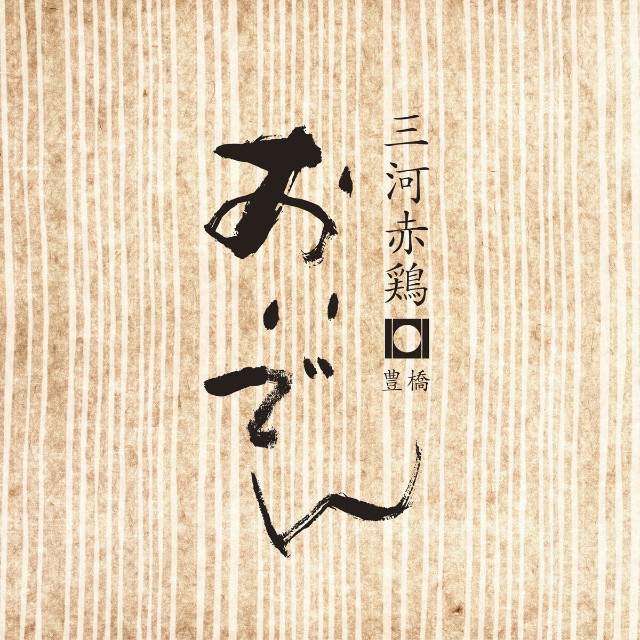 三河赤鶏
豊橋
おいでん